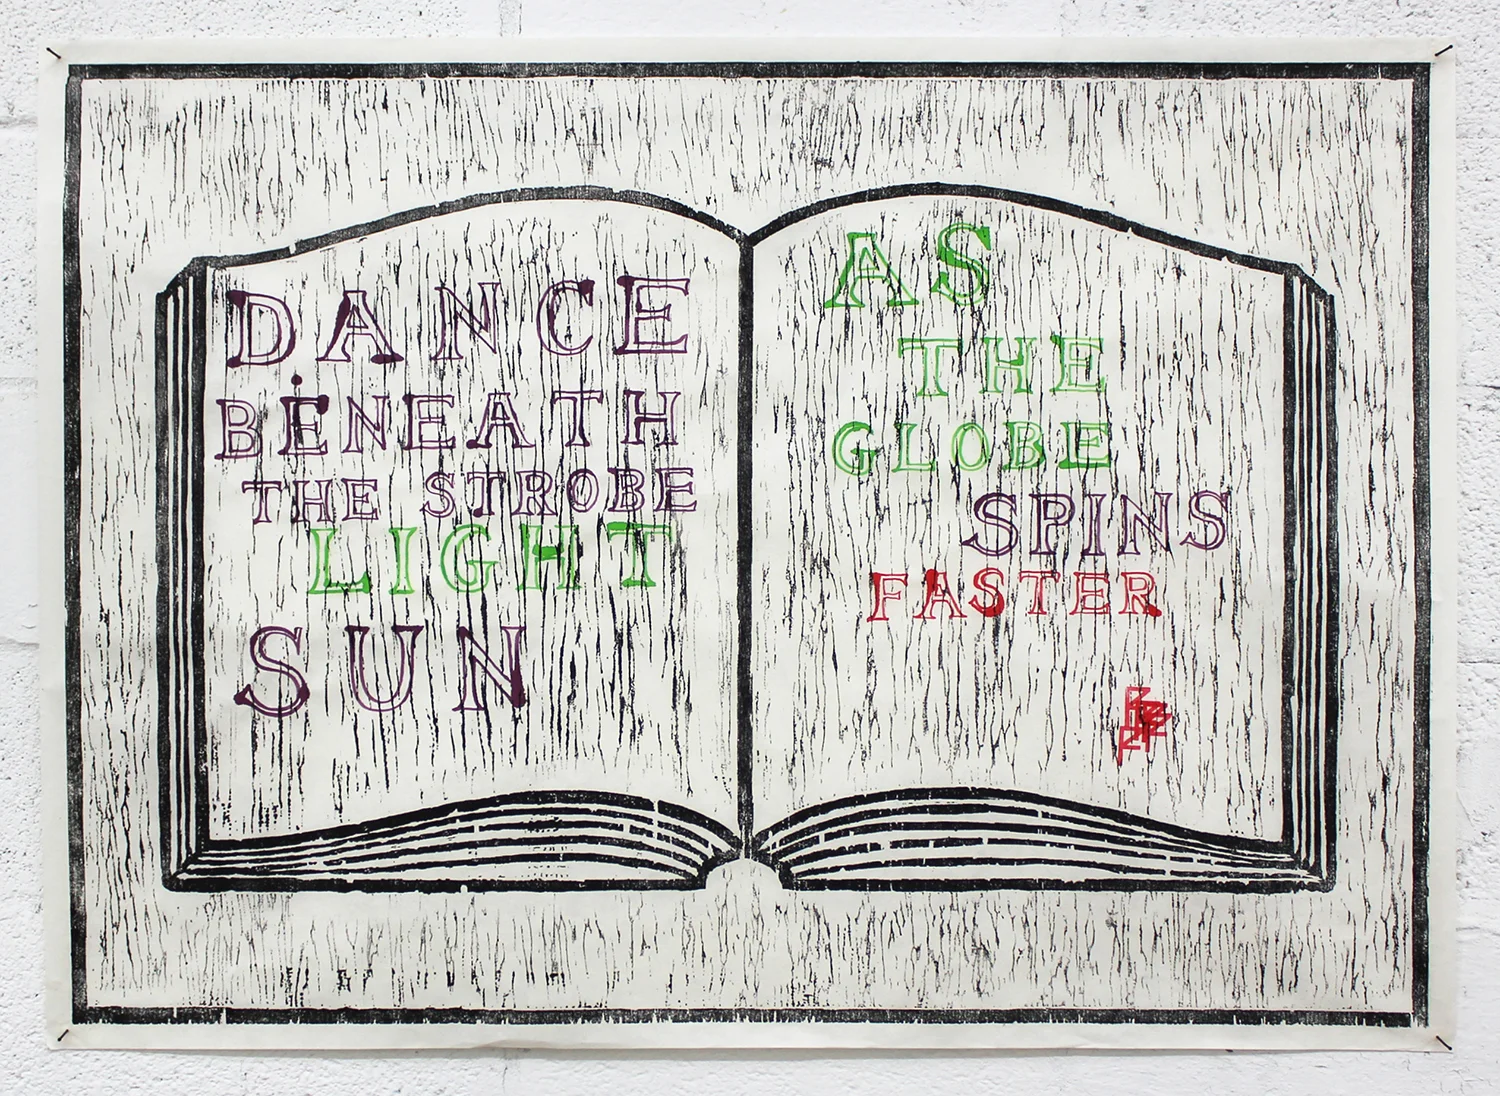 DANCE
BENEATH
THE STROBE
LIGHT
SUN
AS
THE
GLOBE
SPINS
FASTER